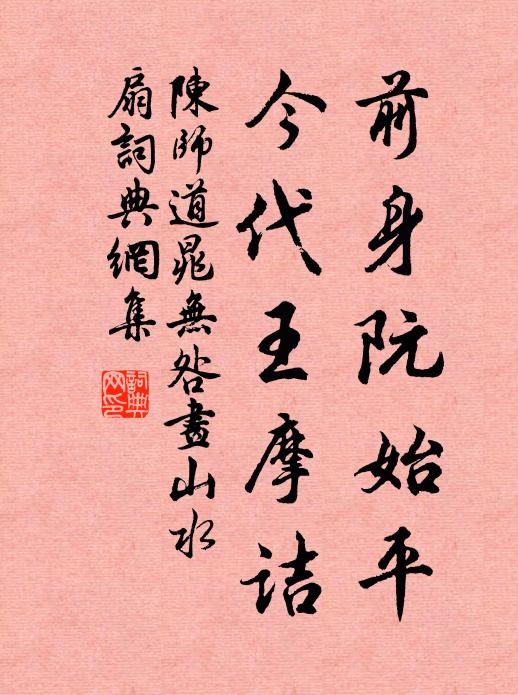 前身阮始平
今代王摩詰
陳師道晁無咎畫山水
扇詞典網集
詞典網印